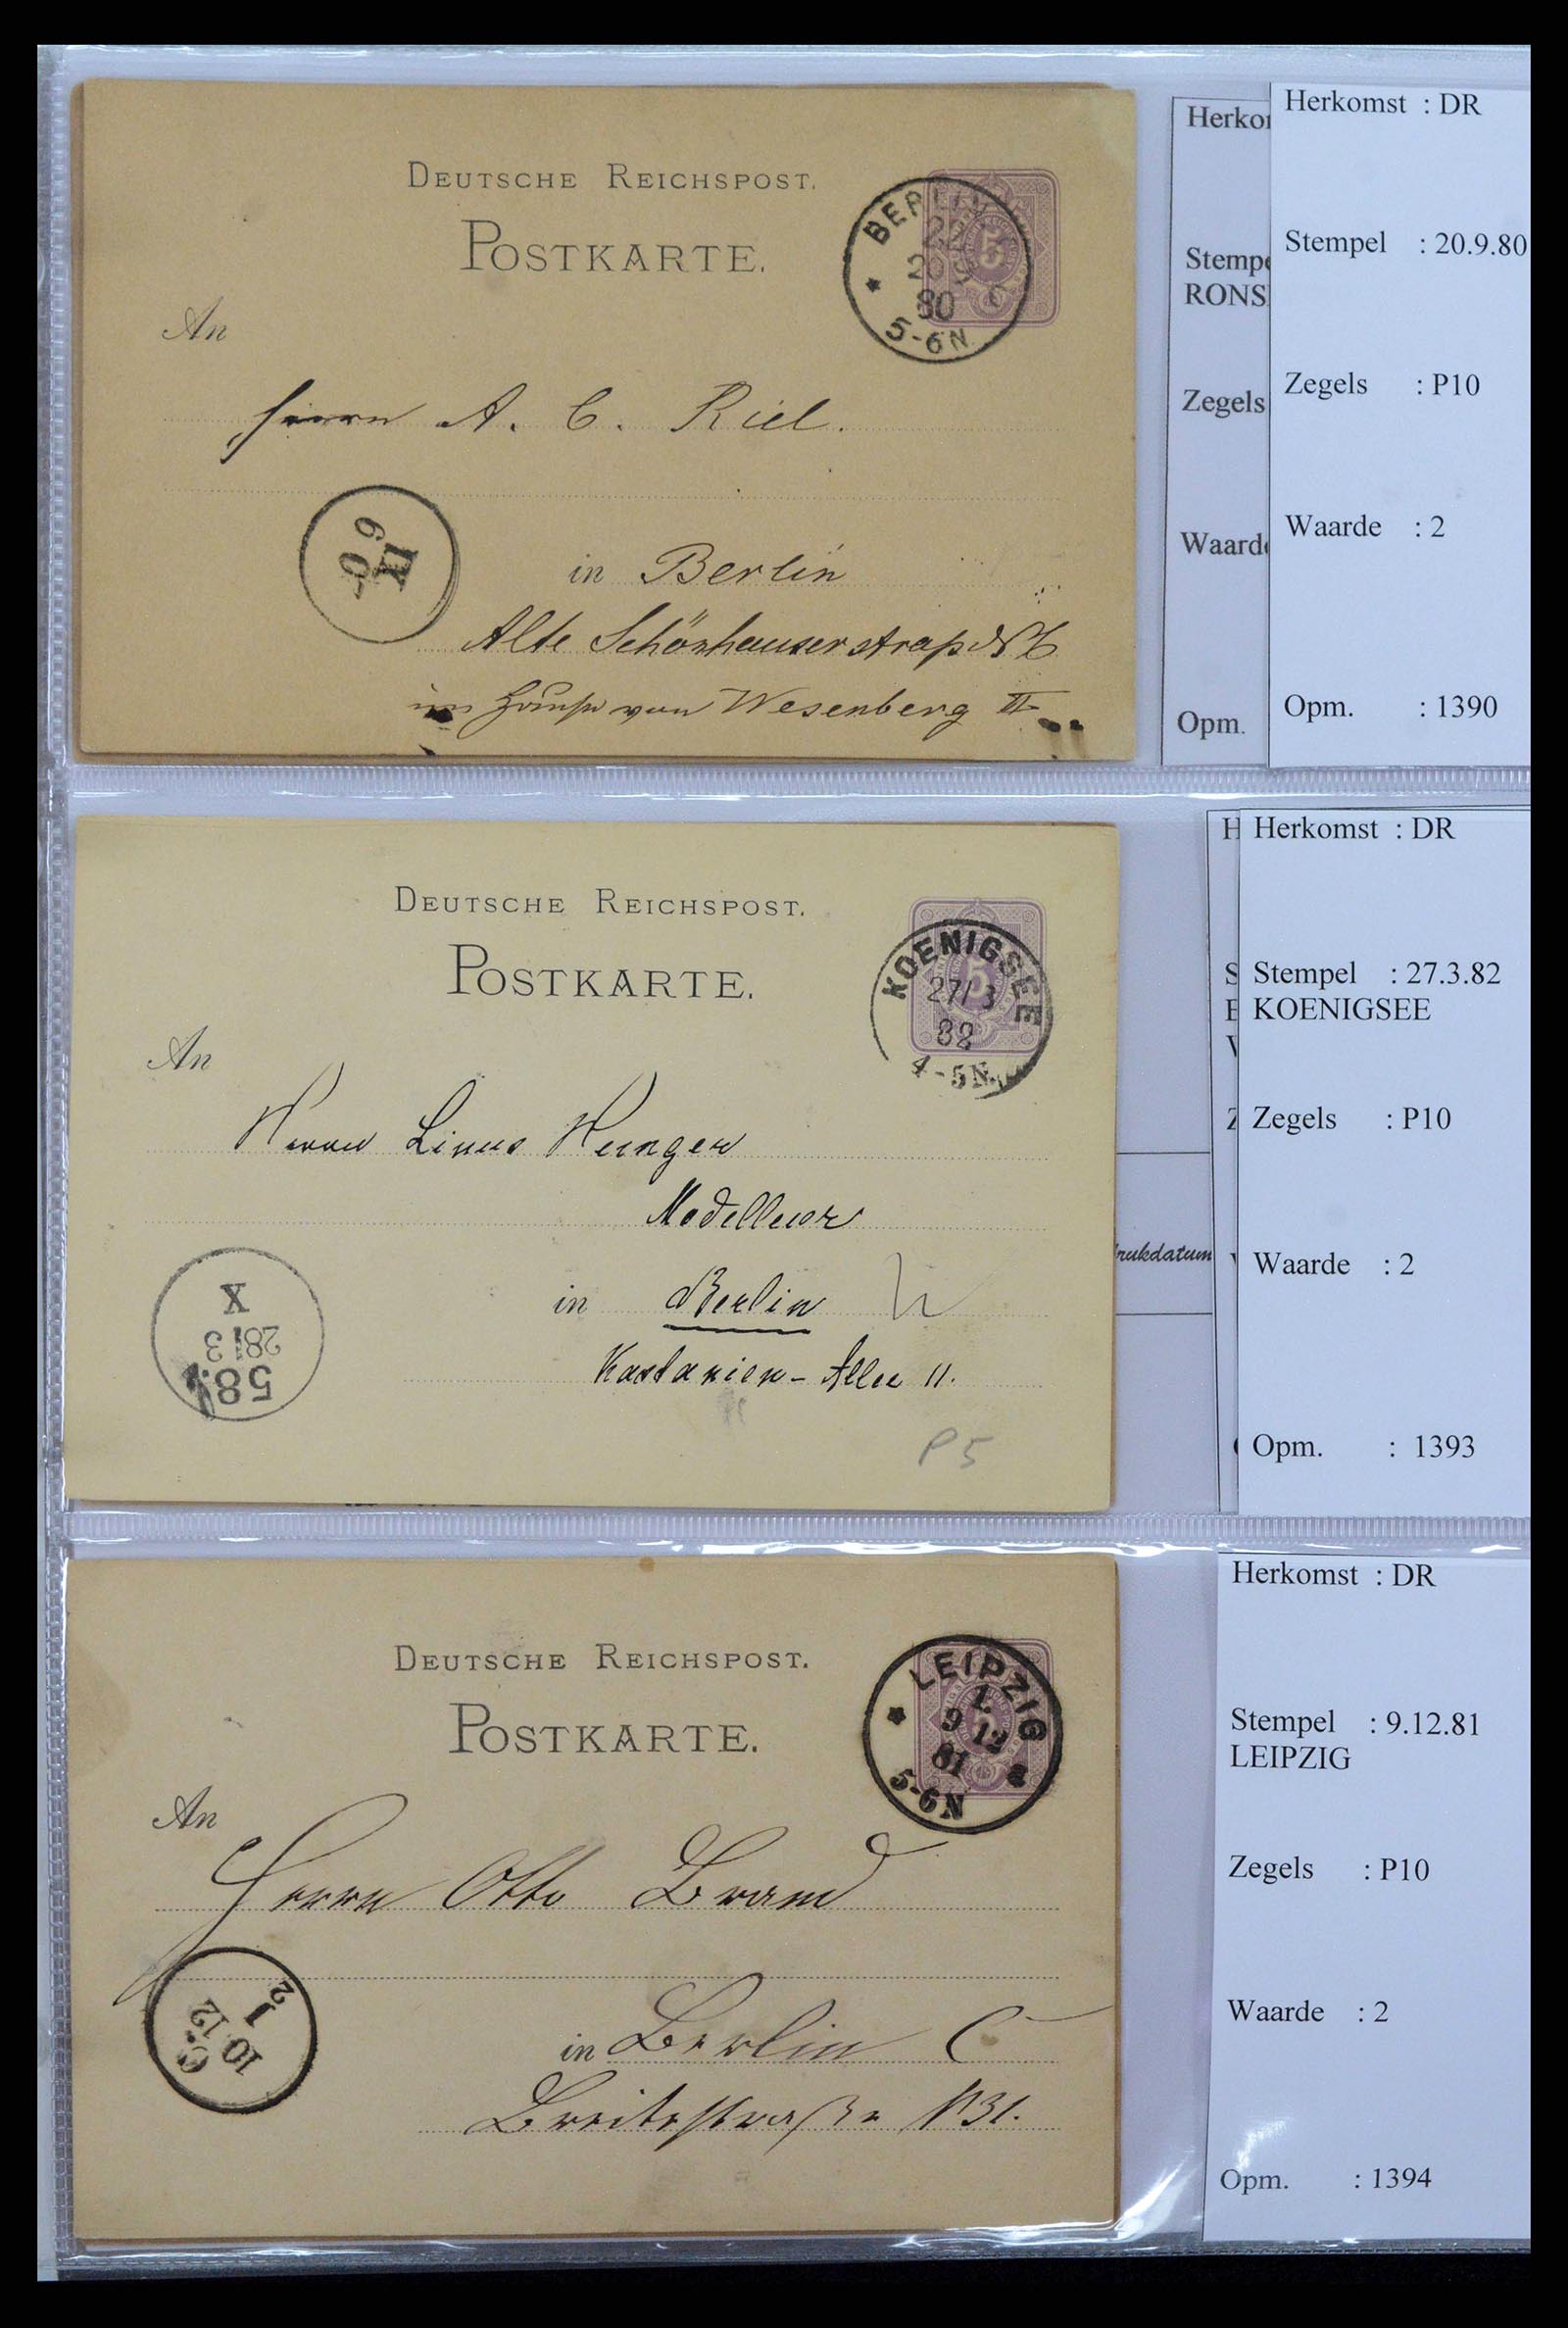 DEUTSCHE REICHSPOST.
POSTKARTE.
BERLIN
22
20 9
80
5-6N
5
An
Herrn A. C. Riel.
in Berlin
Alte Schönhauserstraße № 6
im Hause von Wesenberg II
Herko
Stemp
RONS
Zegels
Waard
Opm.
Herkomst : DR
Stempel : 20.9.80
Zegels : P10
Waarde : 2
Opm. : 1390
DEUTSCHE REICHSPOST.
POSTKARTE.
KOENIGSEE
27/3
82
4-5N.
5
An
Herrn Linus Hunger
Modelleur
in Berlin
Kastanien-Allee 11.
X
28/3
58.
P5
rukdatum
Herkomst : DR
Stempel : 27.3.82
KOENIGSEE
Zegels : P10
Waarde : 2
Opm. : 1393
DEUTSCHE REICHSPOST.
POSTKARTE.
LEIPZIG
1.
9 12
81
5-6N
5
An
Herrn Otto Brand
in Berlin C
Breitestraße № 31.
10 12
Herkomst : DR
Stempel : 9.12.81
LEIPZIG
Zegels : P10
Waarde : 2
Opm. : 1394